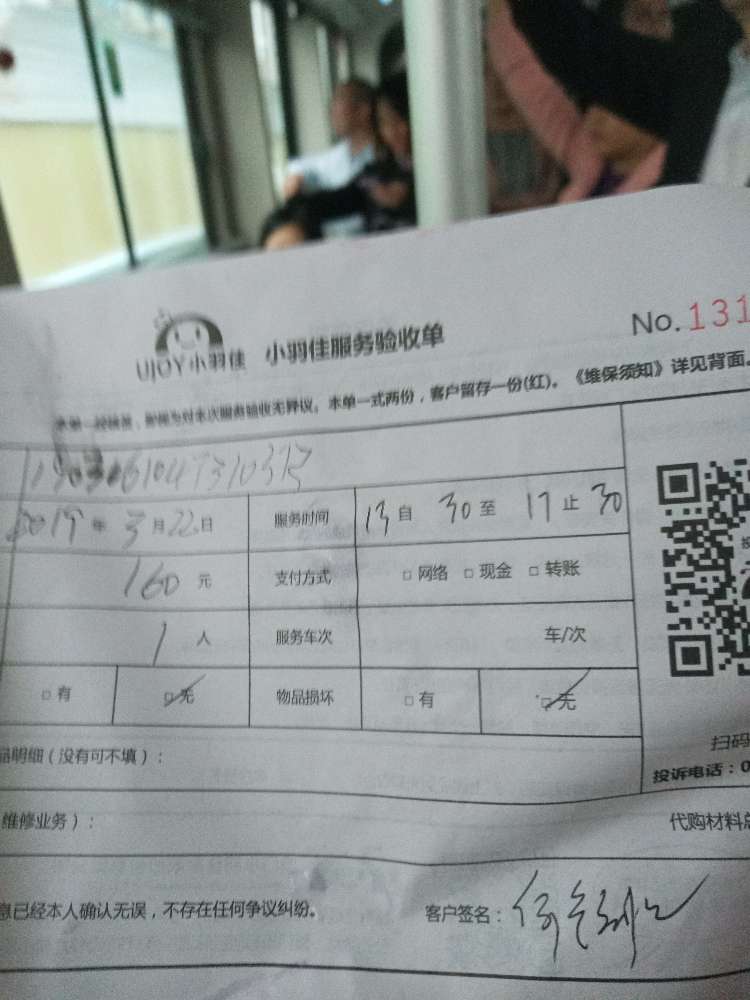 UJOY小羽佳 小羽佳服务验收单 No.131
对本次服务验收无异议。本单一式两份，客户留存一份(红)。《维保须知》详见背面。
2019年3月22日 服务时间 13自30至17止30
160元 支付方式 □网络 □现金 □转账
1人 服务车次 车/次
□有 □无 物品损坏 □有 □无
品明细（没有可不填）：
扫码
投诉电话：0
维修业务）： 代购材料总
息已经本人确认无误，不存在任何争议纠纷。 客户签名：